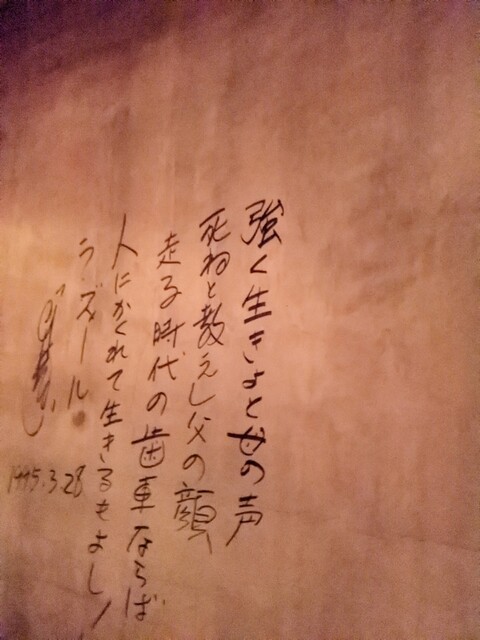 強く生きよと母の声
死ねと教えし父の顔
走る時代の歯車ならば
人にかくれて生きるもよし!
ラ・ズール
1995.3.28